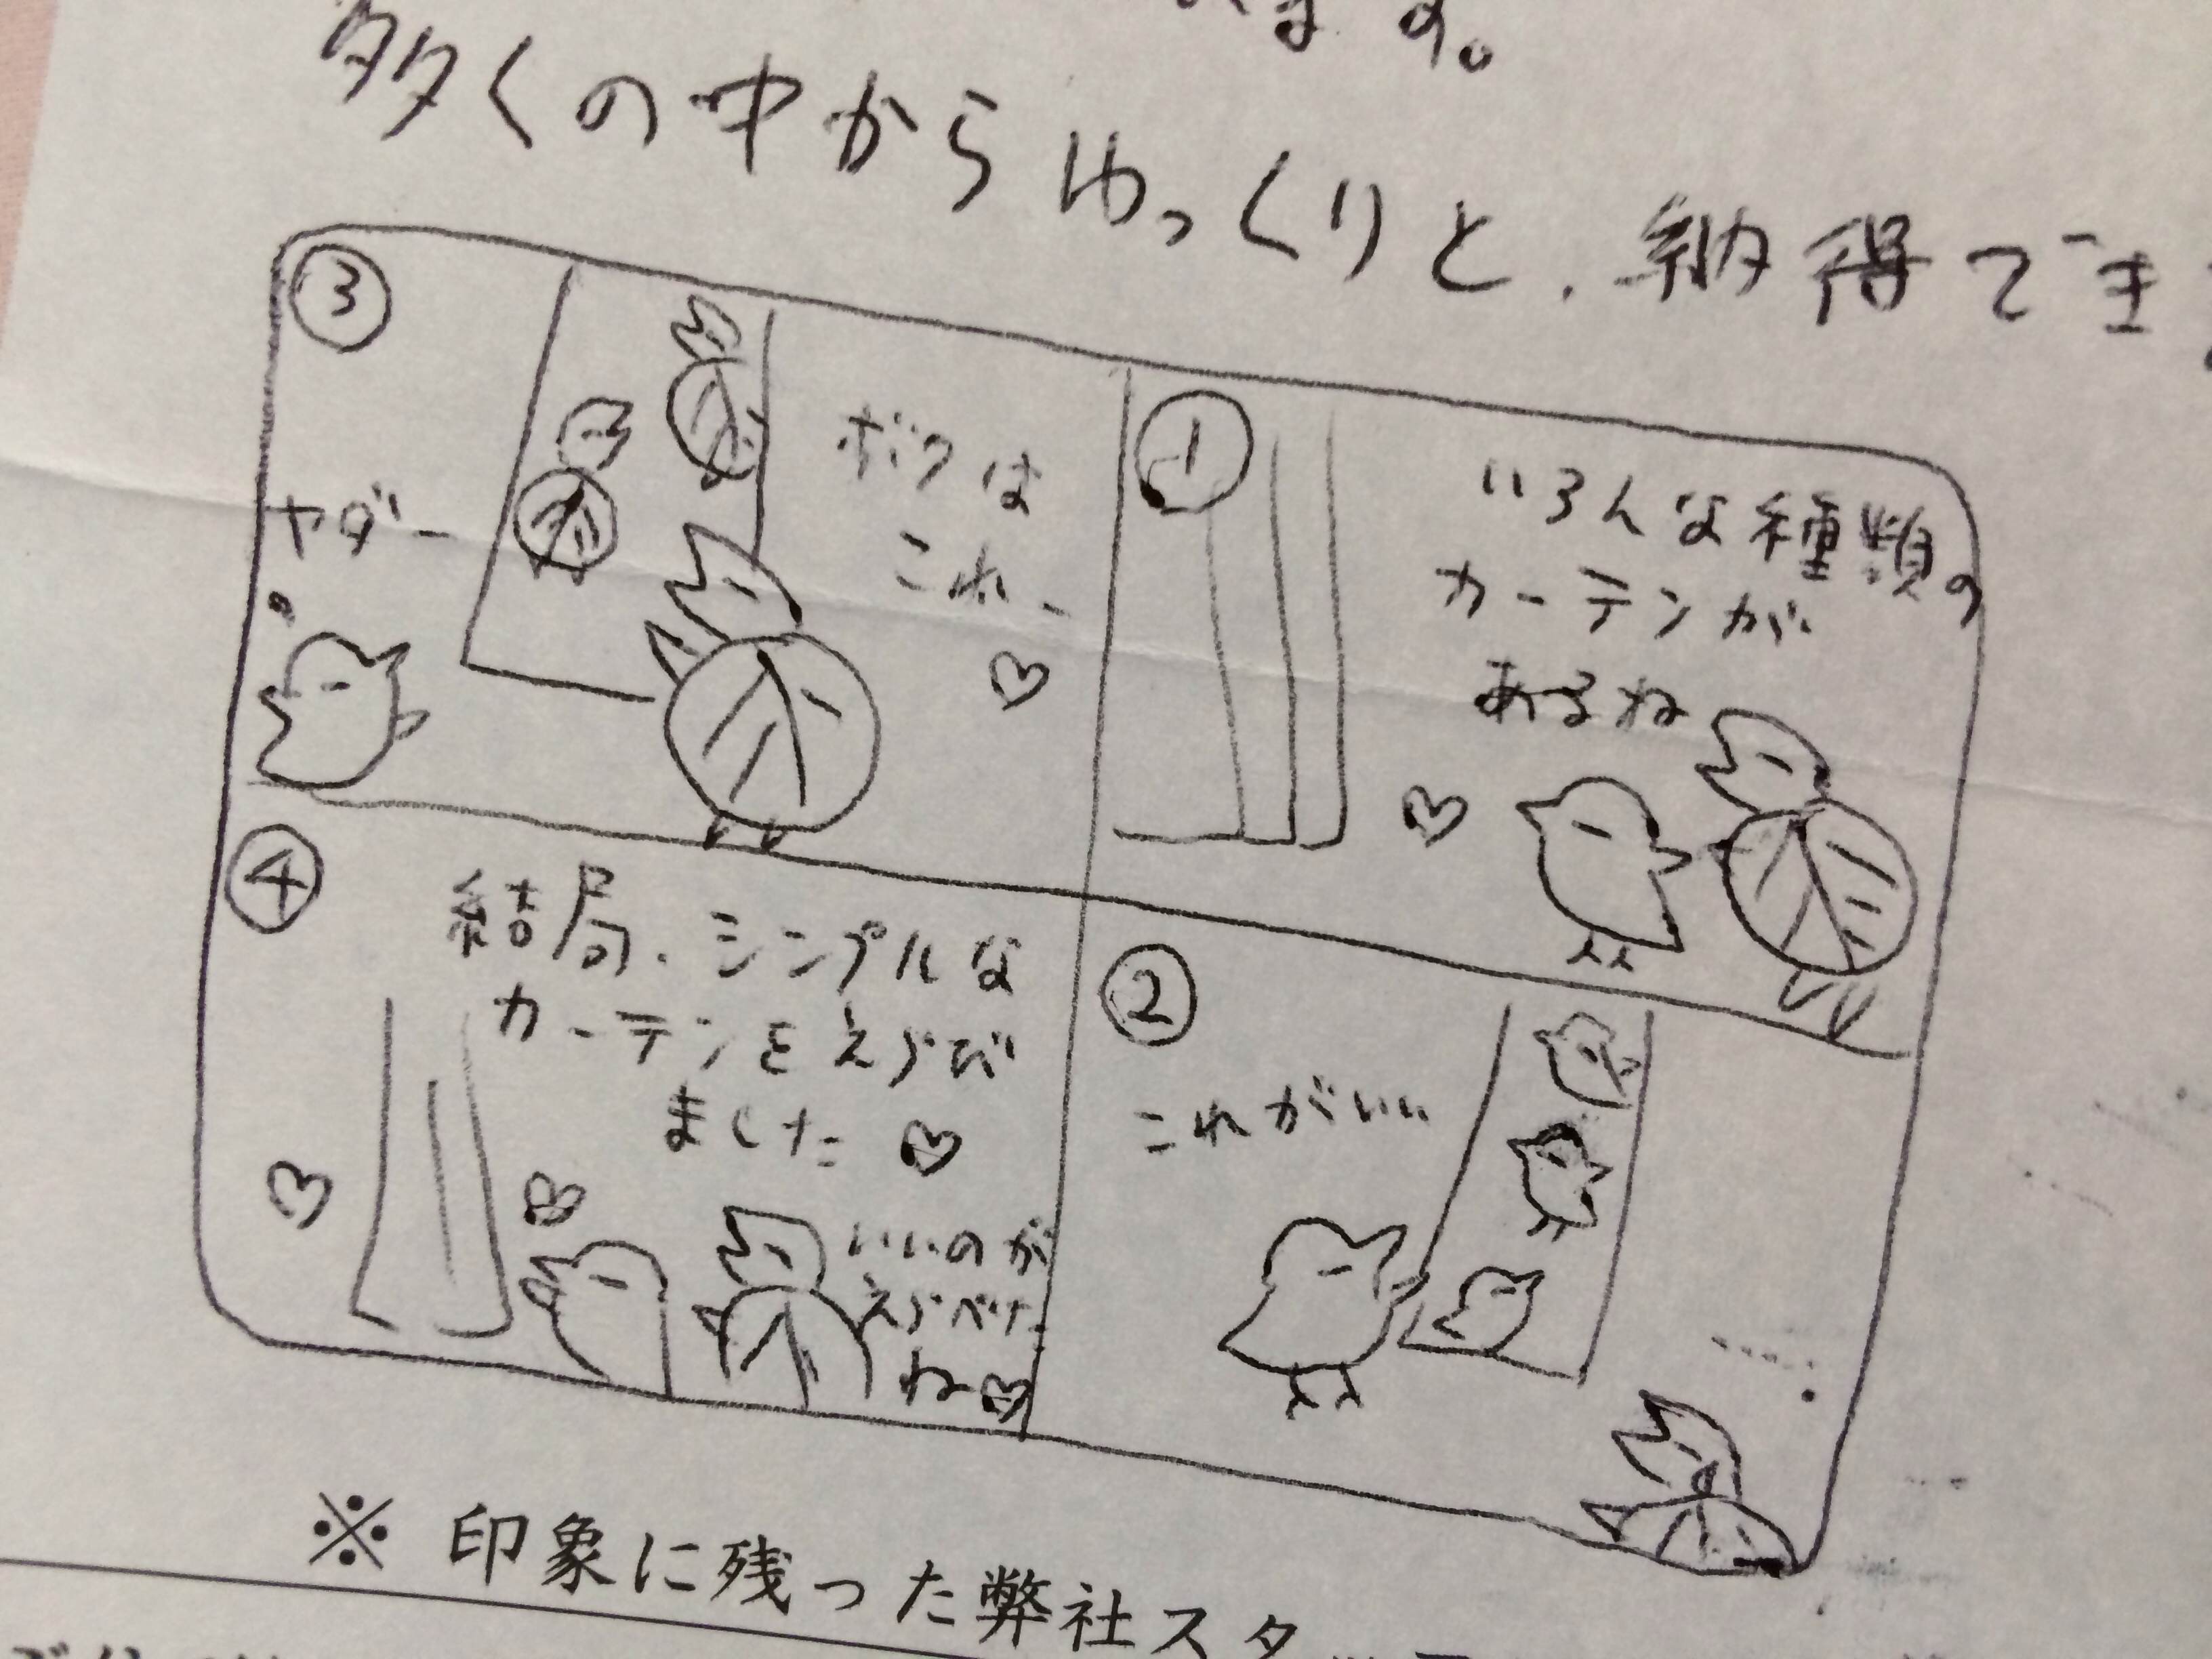 ます。
多くの中からゆっくりと、納得でき
①
いろんな種類の
カーテンが
あるね
②
これがいい
③
ボクは
これー
ヤダー
④
結局、シンプルな
カーテンをえらび
ました
いいのが
えらべた
ね
※ 印象に残った弊社スタッフ